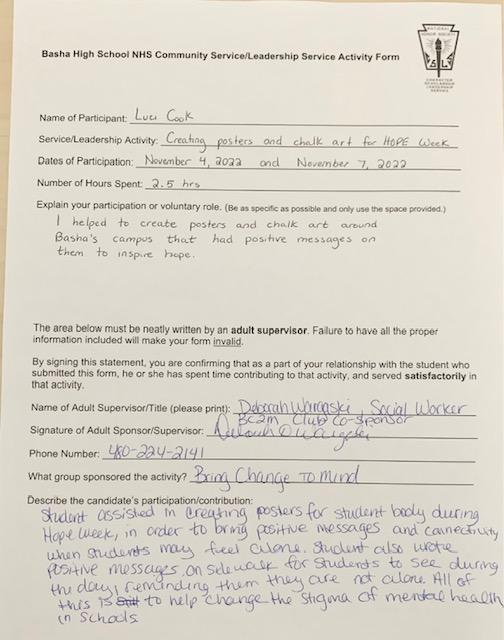 NATIONAL
HONOR SOCIETY
Basha High School NHS Community Service/Leadership Service Activity Form
CHARACTER
SCHOLARSHIP
LEADERSHIP
SERVICE
Name of Participant: Luci Cook
Service/Leadership Activity: Creating posters and chalk art for HOPE Week
Dates of Participation: November 4, 2022 and November 7, 2022
Number of Hours Spent: 2.5 hrs
Explain your participation or voluntary role. (Be as specific as possible and only use the space provided.)
I helped to create posters and chalk art around
Basha's campus that had positive messages on
them to inspire hope.
The area below must be neatly written by an adult supervisor. Failure to have all the proper
information included will make your form invalid.
By signing this statement, you are confirming that as a part of your relationship with the student who
submitted this form, he or she has spent time contributing to that activity, and served satisfactorily in
that activity.
Name of Adult Supervisor/Title (please print): Deborah Wargaski, Social Worker
BC2M Club Co-sponsor
Signature of Adult Sponsor/Supervisor:
Phone Number: 480-224-2141
What group sponsored the activity? Bring Change To Mind
Describe the candidate's participation/contribution:
Student assisted in creating posters for student body during
Hope Week, in order to bring positive messages and connectivity
when students may feel alone. Student also wrote
positive messages on sidewalk for students to see during
the day, reminding them they are not alone. All of
this is to help change the stigma of mental health
in schools.